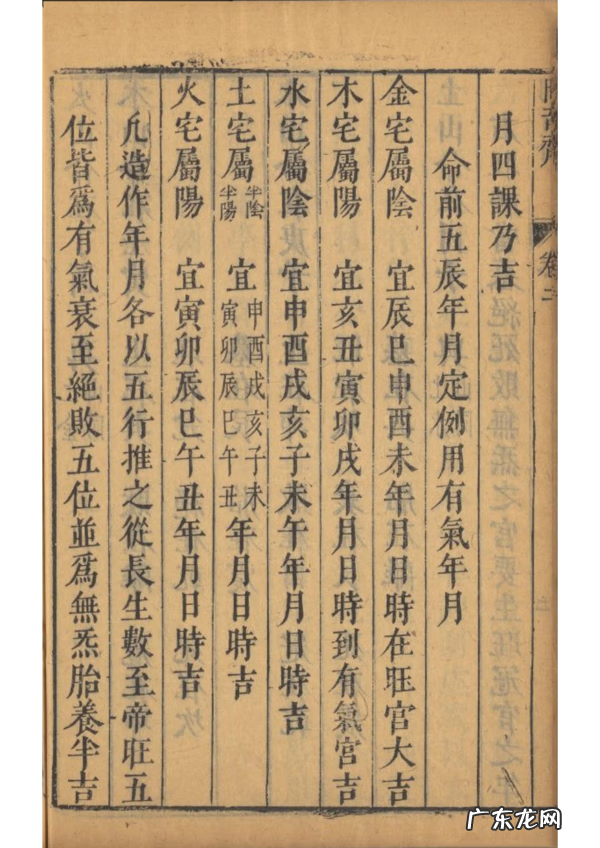 月四課乃吉
命前五辰年月定例用有氣年月
金宅屬陰 宜辰巳申酉未年月日時在旺宮大吉
木宅屬陽 宜亥丑寅卯戌年月日時到有氣宮吉
水宅屬陰 宜申酉戌亥子未午年月日時吉
土宅屬半陰半陽 宜申酉戌亥子未寅卯辰巳午丑年月日時吉
火宅屬陽 宜寅卯辰巳午丑年月日時吉
凢造作年月各以五行推之從長生數至帝旺五
位皆爲有氣衰至絕敗五位並爲無炁胎養半吉
卷二
廣东龙网